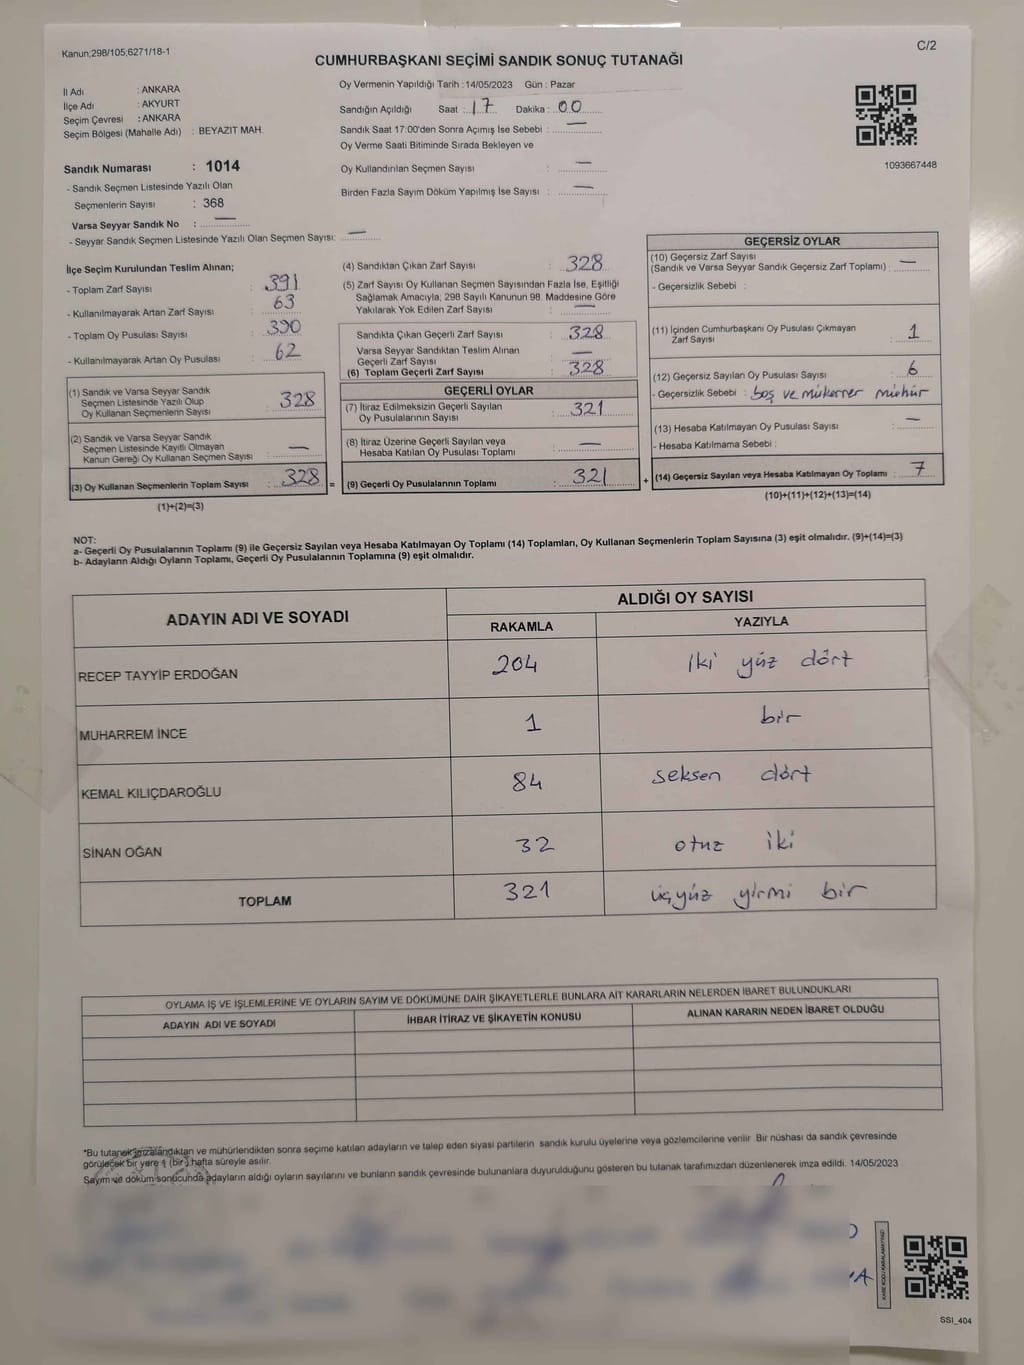 Kanun;298/105;6271/18-1
C/2
CUMHURBAŞKANI SEÇİMİ SANDIK SONUÇ TUTANAĞI
İl Adı : ANKARA
İlçe Adı : AKYURT
Seçim Çevresi : ANKARA
Seçim Bölgesi (Mahalle Adı) : BEYAZIT MAH.
Sandık Numarası : 1014
- Sandık Seçmen Listesinde Yazılı Olan
Seçmenlerin Sayısı : 368
Varsa Seyyar Sandık No : —
- Seyyar Sandık Seçmen Listesinde Yazılı Olan Seçmen Sayısı: —
Oy Vermenin Yapıldığı Tarih :14/05/2023 Gün : Pazar
Sandığın Açıldığı Saat : 17 Dakika : 00
Sandık Saat 17:00'den Sonra Açımış İse Sebebi : —
Oy Verme Saati Bitiminde Sırada Bekleyen ve
Oy Kullandırılan Seçmen Sayısı : —
Birden Fazla Sayım Döküm Yapılmış İse Sayısı : —
1093667448
İlçe Seçim Kurulundan Teslim Alınan;
- Toplam Zarf Sayısı : 391
- Kullanılmayarak Artan Zarf Sayısı : 63
- Toplam Oy Pusulası Sayısı : 390
- Kullanılmayarak Artan Oy Pusulası : 62
(1) Sandık ve Varsa Seyyar Sandık
Seçmen Listesinde Yazılı Olup
Oy Kullanan Seçmenlerin Sayısı : 328
(2) Sandık ve Varsa Seyyar Sandık
Seçmen Listesinde Kayıtlı Olmayan
Kanun Gereği Oy Kullanan Seçmen Sayısı : —
(3) Oy Kullanan Seçmenlerin Toplam Sayısı : 328 =
(1)+(2)=(3)
(4) Sandıktan Çıkan Zarf Sayısı : 328
(5) Zarf Sayısı Oy Kullanan Seçmen Sayısından Fazla İse, Eşitliği
Sağlamak Amacıyla; 298 Sayılı Kanunun 98. Maddesine Göre
Yakılarak Yok Edilen Zarf Sayısı : —
Sandıkta Çıkan Geçerli Zarf Sayısı : 328
Varsa Seyyar Sandıktan Teslim Alınan
Geçerli Zarf Sayısı : —
(6) Toplam Geçerli Zarf Sayısı : 328
GEÇERLİ OYLAR
(7) İtiraz Edilmeksizin Geçerli Sayılan
Oy Pusulalarının Sayısı : 321
(8) İtiraz Üzerine Geçerli Sayılan veya
Hesaba Katılan Oy Pusulası Toplamı : —
(9) Geçerli Oy Pusulalarının Toplamı : 321 +
GEÇERSİZ OYLAR
(10) Geçersiz Zarf Sayısı
(Sandık ve Varsa Seyyar Sandık Geçersiz Zarf Toplamı) : —
- Geçersizlik Sebebi :
(11) İçinden Cumhurbaşkanı Oy Pusulası Çıkmayan
Zarf Sayısı : 1
(12) Geçersiz Sayılan Oy Pusulası Sayısı : 6
- Geçersizlik Sebebi : boş ve mükerrer mühür
(13) Hesaba Katılmayan Oy Pusulası Sayısı : —
- Hesaba Katılmama Sebebi :
(14) Geçersiz Sayılan veya Hesaba Katılmayan Oy Toplamı : 7
(10)+(11)+(12)+(13)=(14)
NOT:
a- Geçerli Oy Pusulalarının Toplamı (9) ile Geçersiz Sayılan veya Hesaba Katılmayan Oy Toplamı (14) Toplamları, Oy Kullanan Seçmenlerin Toplam Sayısına (3) eşit olmalıdır. (9)+(14)=(3)
b- Adayların Aldığı Oyların Toplamı, Geçerli Oy Pusulalarının Toplamına (9) eşit olmalıdır.
ADAYIN ADI VE SOYADI
ALDIĞI OY SAYISI
RAKAMLA YAZIYLA
RECEP TAYYİP ERDOĞAN 204 iki yüz dört
MUHARREM İNCE 1 bir
KEMAL KILIÇDAROĞLU 84 seksen dört
SİNAN OĞAN 32 otuz iki
TOPLAM 321 üçyüz yirmi bir
OYLAMA İŞ VE İŞLEMLERİNE VE OYLARIN SAYIM VE DÖKÜMÜNE DAİR ŞİKAYETLERLE BUNLARA AİT KARARLARIN NELERDEN İBARET BULUNDUKLARI
ADAYIN ADI VE SOYADI İHBAR İTİRAZ VE ŞİKAYETİN KONUSU ALINAN KARARIN NEDEN İBARET OLDUĞU
*Bu tutanak imzalandıktan ve mühürlendikten sonra seçime katılan adayların ve talep eden siyasi partilerin sandık kurulu üyelerine veya gözlemcilerine verilir. Bir nüshası da sandık çevresinde
görülecek bir yere 1 (bir) hafta süreyle asılır.
Sayım ve döküm sonucunda adayların aldığı oyların sayılarını ve bunların sandık çevresinde bulunanlara duyurulduğunu gösteren bu tutanak tarafımızdan düzenlenerek imza edildi. 14/05/2023
SSI_404